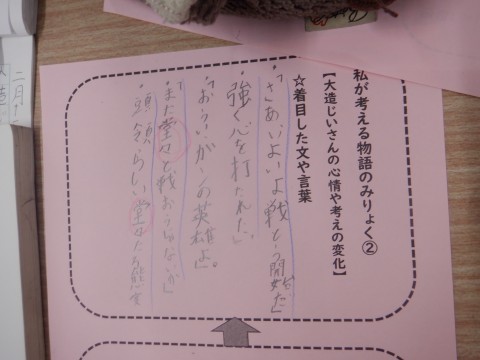 私が考える物語のみりょく②
【大造じいさんの心情や考えの変化】
☆着目した文や言葉
・「さあ、いよいよ戦とう開始だ」
・強く心を打たれた。
・「おうい、ガンの英雄よ。
「また堂々と戦おうじゃないか」
・頭領らしい堂々たる態度
二月